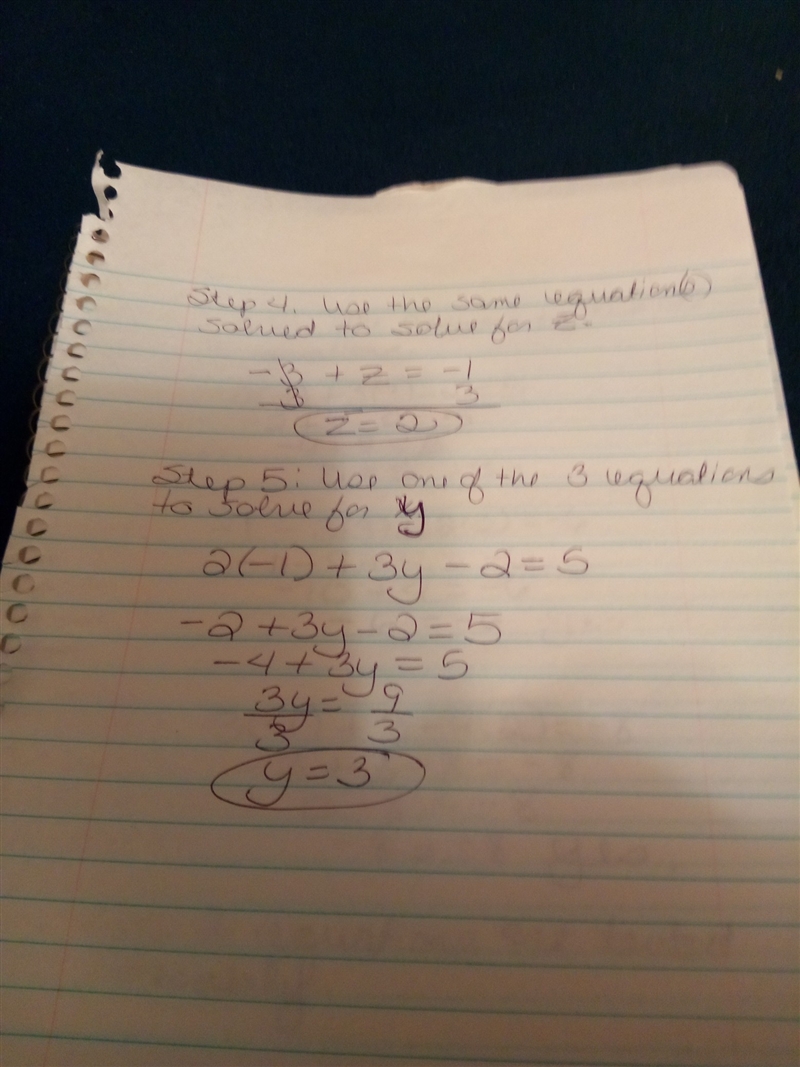 Step 4. Use the same equation(s)
solved to solve for z.
-3 + z = -1
3 3
z = 2
Step 5: Use one of the 3 equations
to solve for y
2(-1) + 3y - 2 = 5
-2 + 3y - 2 = 5
-4 + 3y = 5
3y = 9
3 3
y = 3